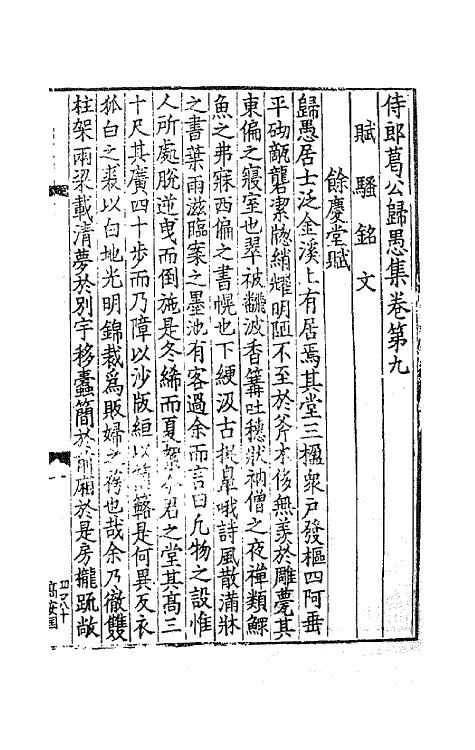 侍郎葛公歸愚集卷第九
賦騷銘文
餘慶堂賦
歸愚居士泛金溪上有居焉其堂三楹衆戶發樞四阿垂
平砌甋礱礎潔牕綃耀明陋不至於斧才侈無羨於雕甍其
東偏之寢室也翠被翻波香篝吐穗狀衲僧之夜禪類鰥
魚之弗寐西偏之書幌也下綆汲古撚卑哦詩風散滿牀
之書葉雨滋臨案之墨池有客過余而言曰凡物之設惟
人所處脫逆曳而倒施是冬絺而夏絮今君之堂其髙三
十尺其廣四十步而乃障以沙版絙以簬是何異反衣
狐白之裘以白地光明錦裁爲販婦之袴也哉余乃徹雙
柱架兩梁載清夢於别宇移蠹簡於前廂於是房櫳疏敞